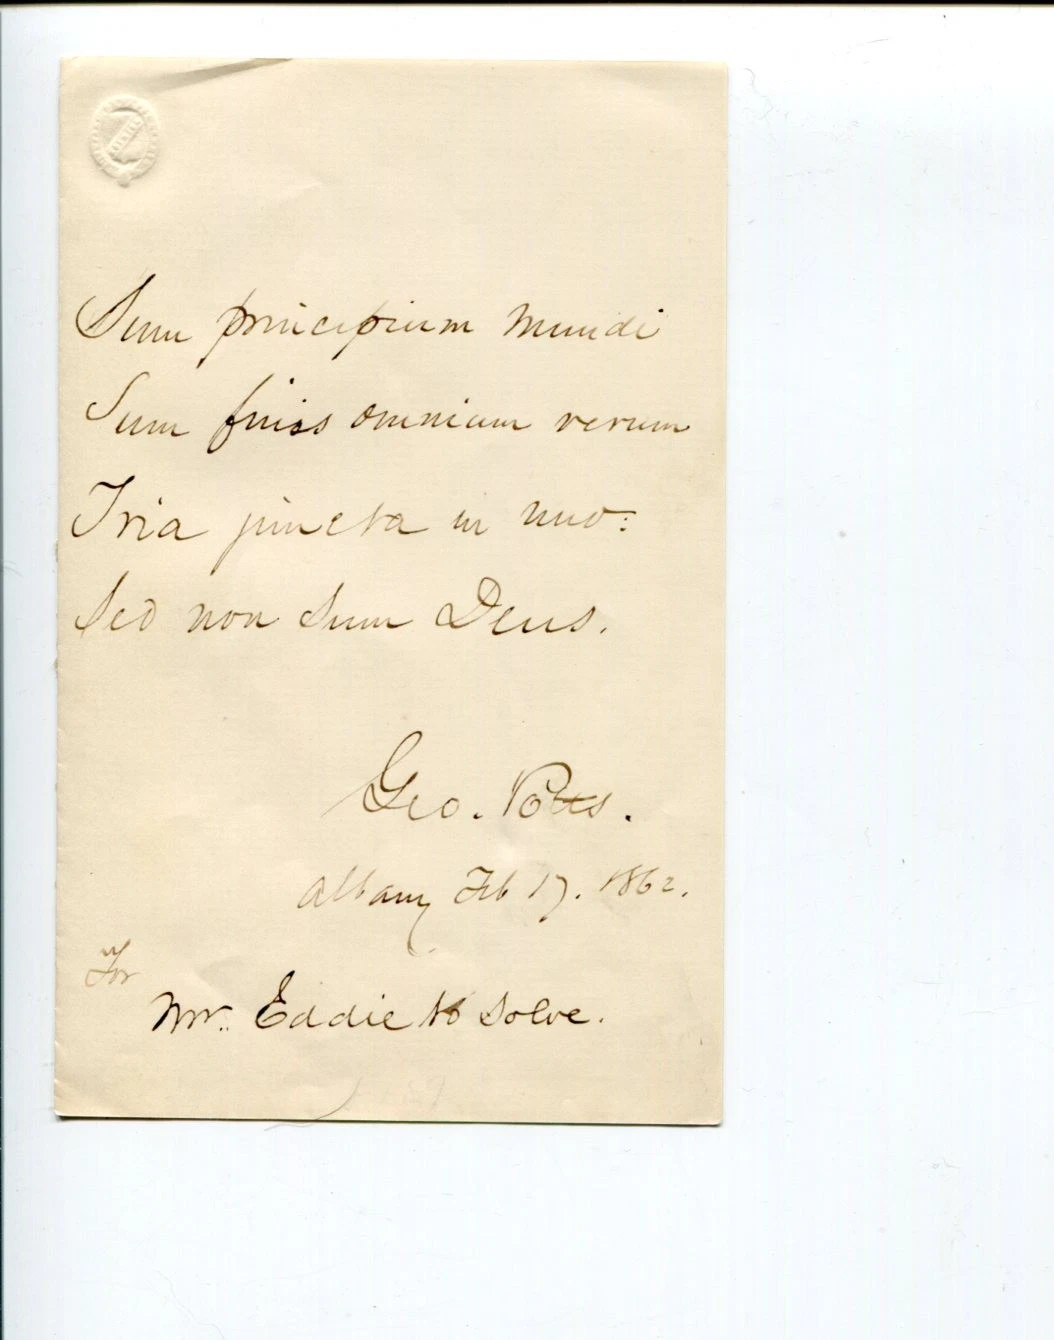 Sum principium mundi
Sum finis omnium rerum
Tria juncta in uno:
Sed non sum Deus.
Geo. Potts.
Albany Feb 17. 1862.
For
Mr. Eddie to solve.